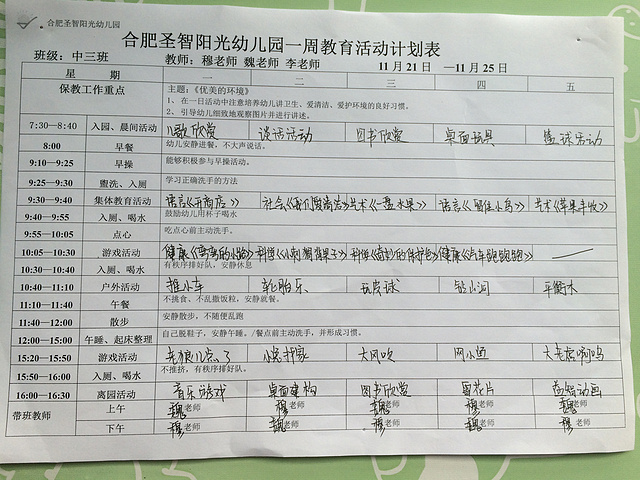 合肥圣智阳光幼儿园
合肥圣智阳光幼儿园一周教育活动计划表
班级：中三班 教师：穆老师 魏老师 李老师 11月21日 —11月25日
星 期 一 二 三 四 五
保教工作重点 主题：《优美的环境》
1、在一日活动中注意培养幼儿讲卫生、爱清洁、爱护环境的良好习惯。
2、引导幼儿细致地观察图片并进行讲述。
7:30—8:40 入园、晨间活动 儿歌欣赏 谈话活动 图书欣赏 桌面玩具 篮球活动
8:00 早餐 幼儿安静进餐，不大声说话。
9:10—9:25 早操 能够积极参与早操活动。
9:25—9:30 盥洗、入厕 学习正确洗手的方法
9:30—9:40 集体教育活动 语言《开商店》 社会 艺术《一盘水果》 语言《留住小鸟》 艺术《苹果丰收》
9:40—9:55 入厕、喝水 鼓励幼儿用杯子喝水
9:55—10:05 点心 吃点心前主动洗手。
10:05—10:30 游戏活动 健康《弯弯的小路》 科学 科学 健康《汽车跑跑跑》
10:30—10:40 入厕、喝水 有秩序排好队，安静休息
10:40—11:10 户外活动 推小车 轮胎乐 玩皮球 钻山洞 平衡木
11:10—11:40 午餐 不挑食、不乱撒饭粒，安静就餐。
11:40—12:00 散步 安静散步，不随便乱跑
12:00—15:00 午睡、起床整理 自己脱鞋子，安静午睡。/餐点前主动洗手，并形成习惯。
15:20—15:50 游戏活动 老狼几点了 小兔找家 大风吹 网小鱼 大老虎啊呜
15:50—16:00 入厕、喝水 不推挤，有秩序排好队。
16:00—16:30 离园活动 音乐游戏 桌面建构 图书欣赏 雪花片 益智动画
带班教师 上午 魏老师 穆老师 魏老师 穆老师 魏老师
下午 穆老师 魏老师 穆老师 魏老师 穆老师